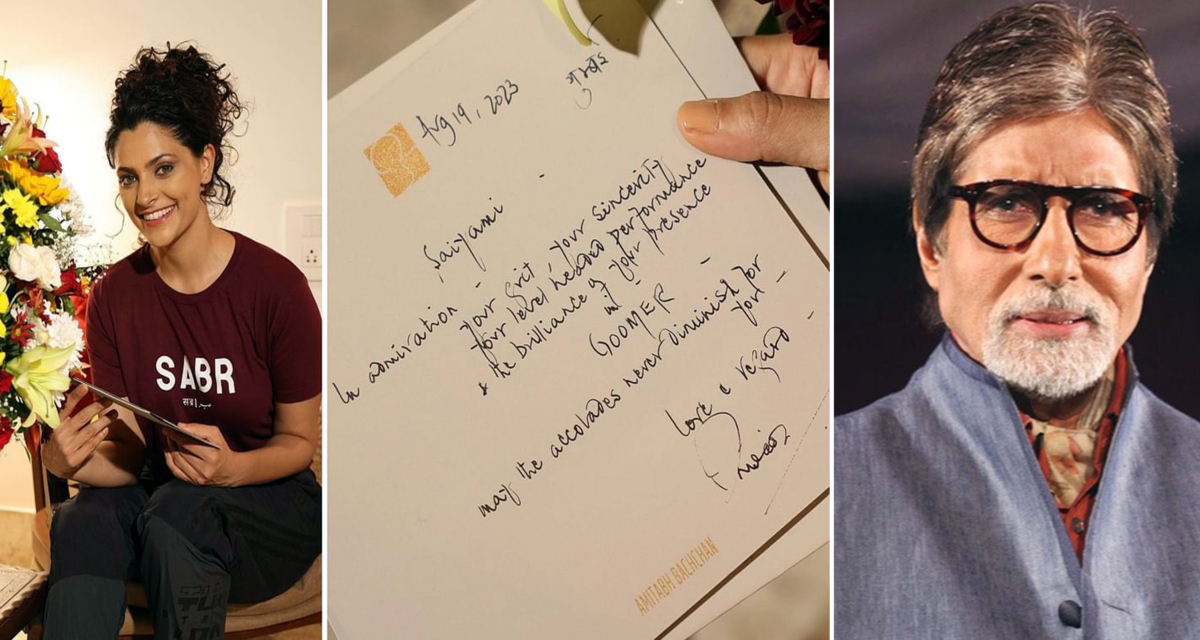 SABR
सब्र | صبر
Aug 19, 2023
मुम्बई
Saiyami
In admiration -
your grit, your sincerity
your level headed performance
& the brilliance of your presence
in -
GOOMER -
may the accolades never diminish for
you -
love & regard -
AMITABH BACHCHAN